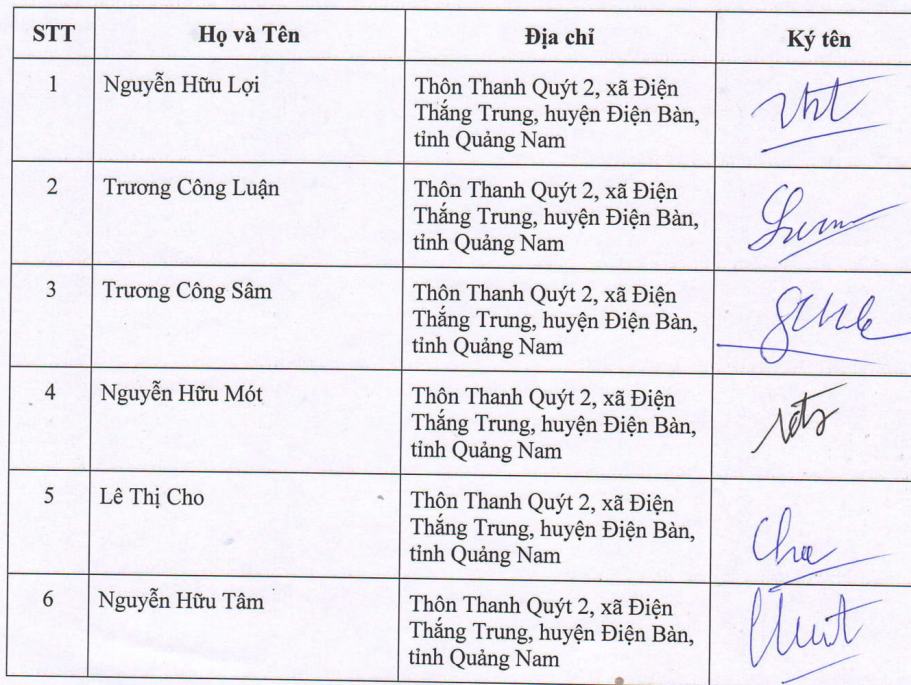 STT Họ và Tên Địa chỉ Ký tên
1 Nguyễn Hữu Lợi Thôn Thanh Quýt 2, xã Điện
Thắng Trung, huyện Điện Bàn,
tỉnh Quảng Nam
2 Trương Công Luận Thôn Thanh Quýt 2, xã Điện
Thắng Trung, huyện Điện Bàn,
tỉnh Quảng Nam
3 Trương Công Sâm Thôn Thanh Quýt 2, xã Điện
Thắng Trung, huyện Điện Bàn,
tỉnh Quảng Nam
4 Nguyễn Hữu Mót Thôn Thanh Quýt 2, xã Điện
Thắng Trung, huyện Điện Bàn,
tỉnh Quảng Nam
5 Lê Thị Cho Thôn Thanh Quýt 2, xã Điện
Thắng Trung, huyện Điện Bàn,
tỉnh Quảng Nam
6 Nguyễn Hữu Tâm Thôn Thanh Quýt 2, xã Điện
Thắng Trung, huyện Điện Bàn,
tỉnh Quảng Nam